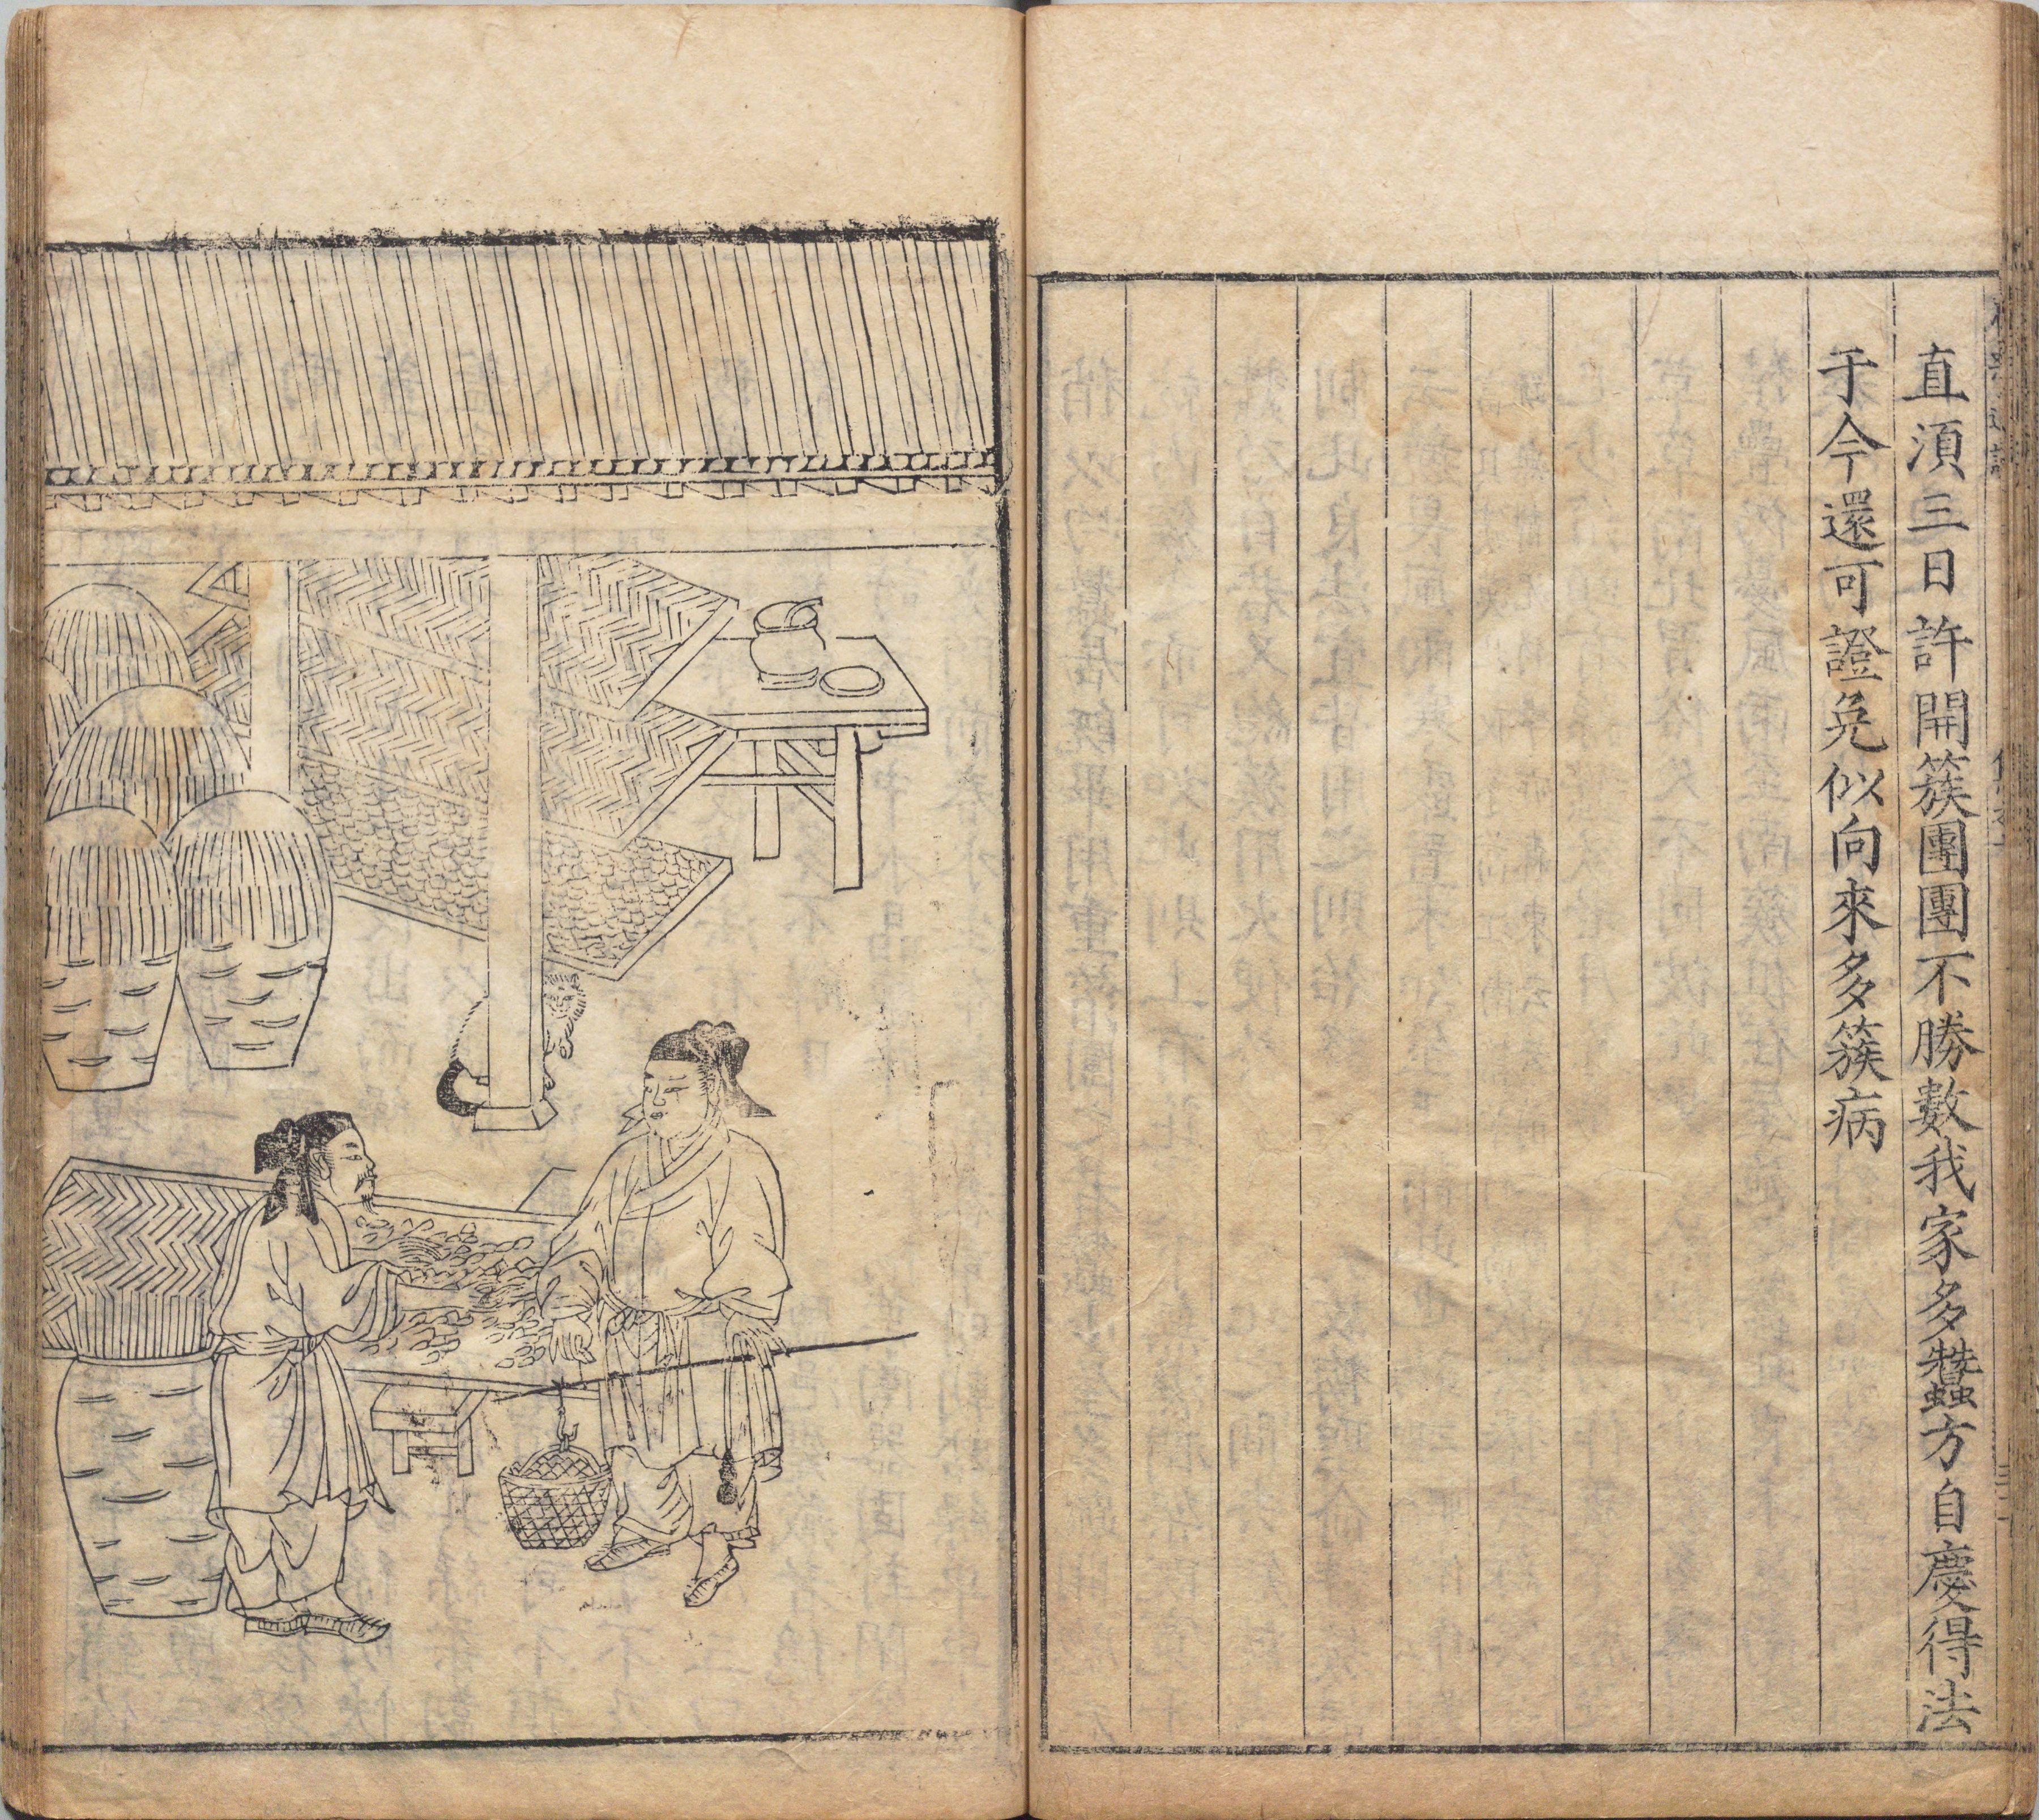 直須三日許開簇團團不勝數我家多蠶方自慶得法
于今還可證免似向來多簇病